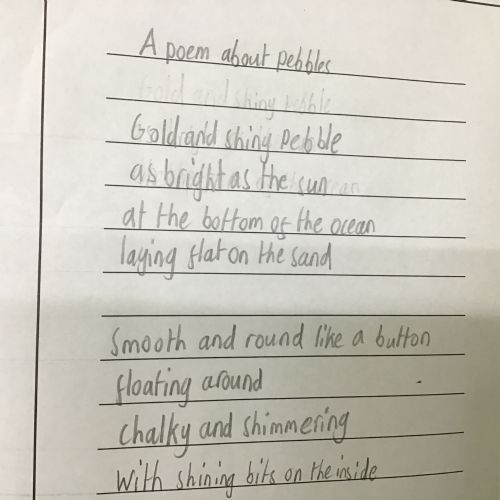 A poem about pebbles
Gold and shiny pebble
Gold and shiny pebble
as bright as the sun
at the bottom of the ocean
laying flat on the sand
Smooth and round like a button
floating around
chalky and shimmering
with shining bits on the inside